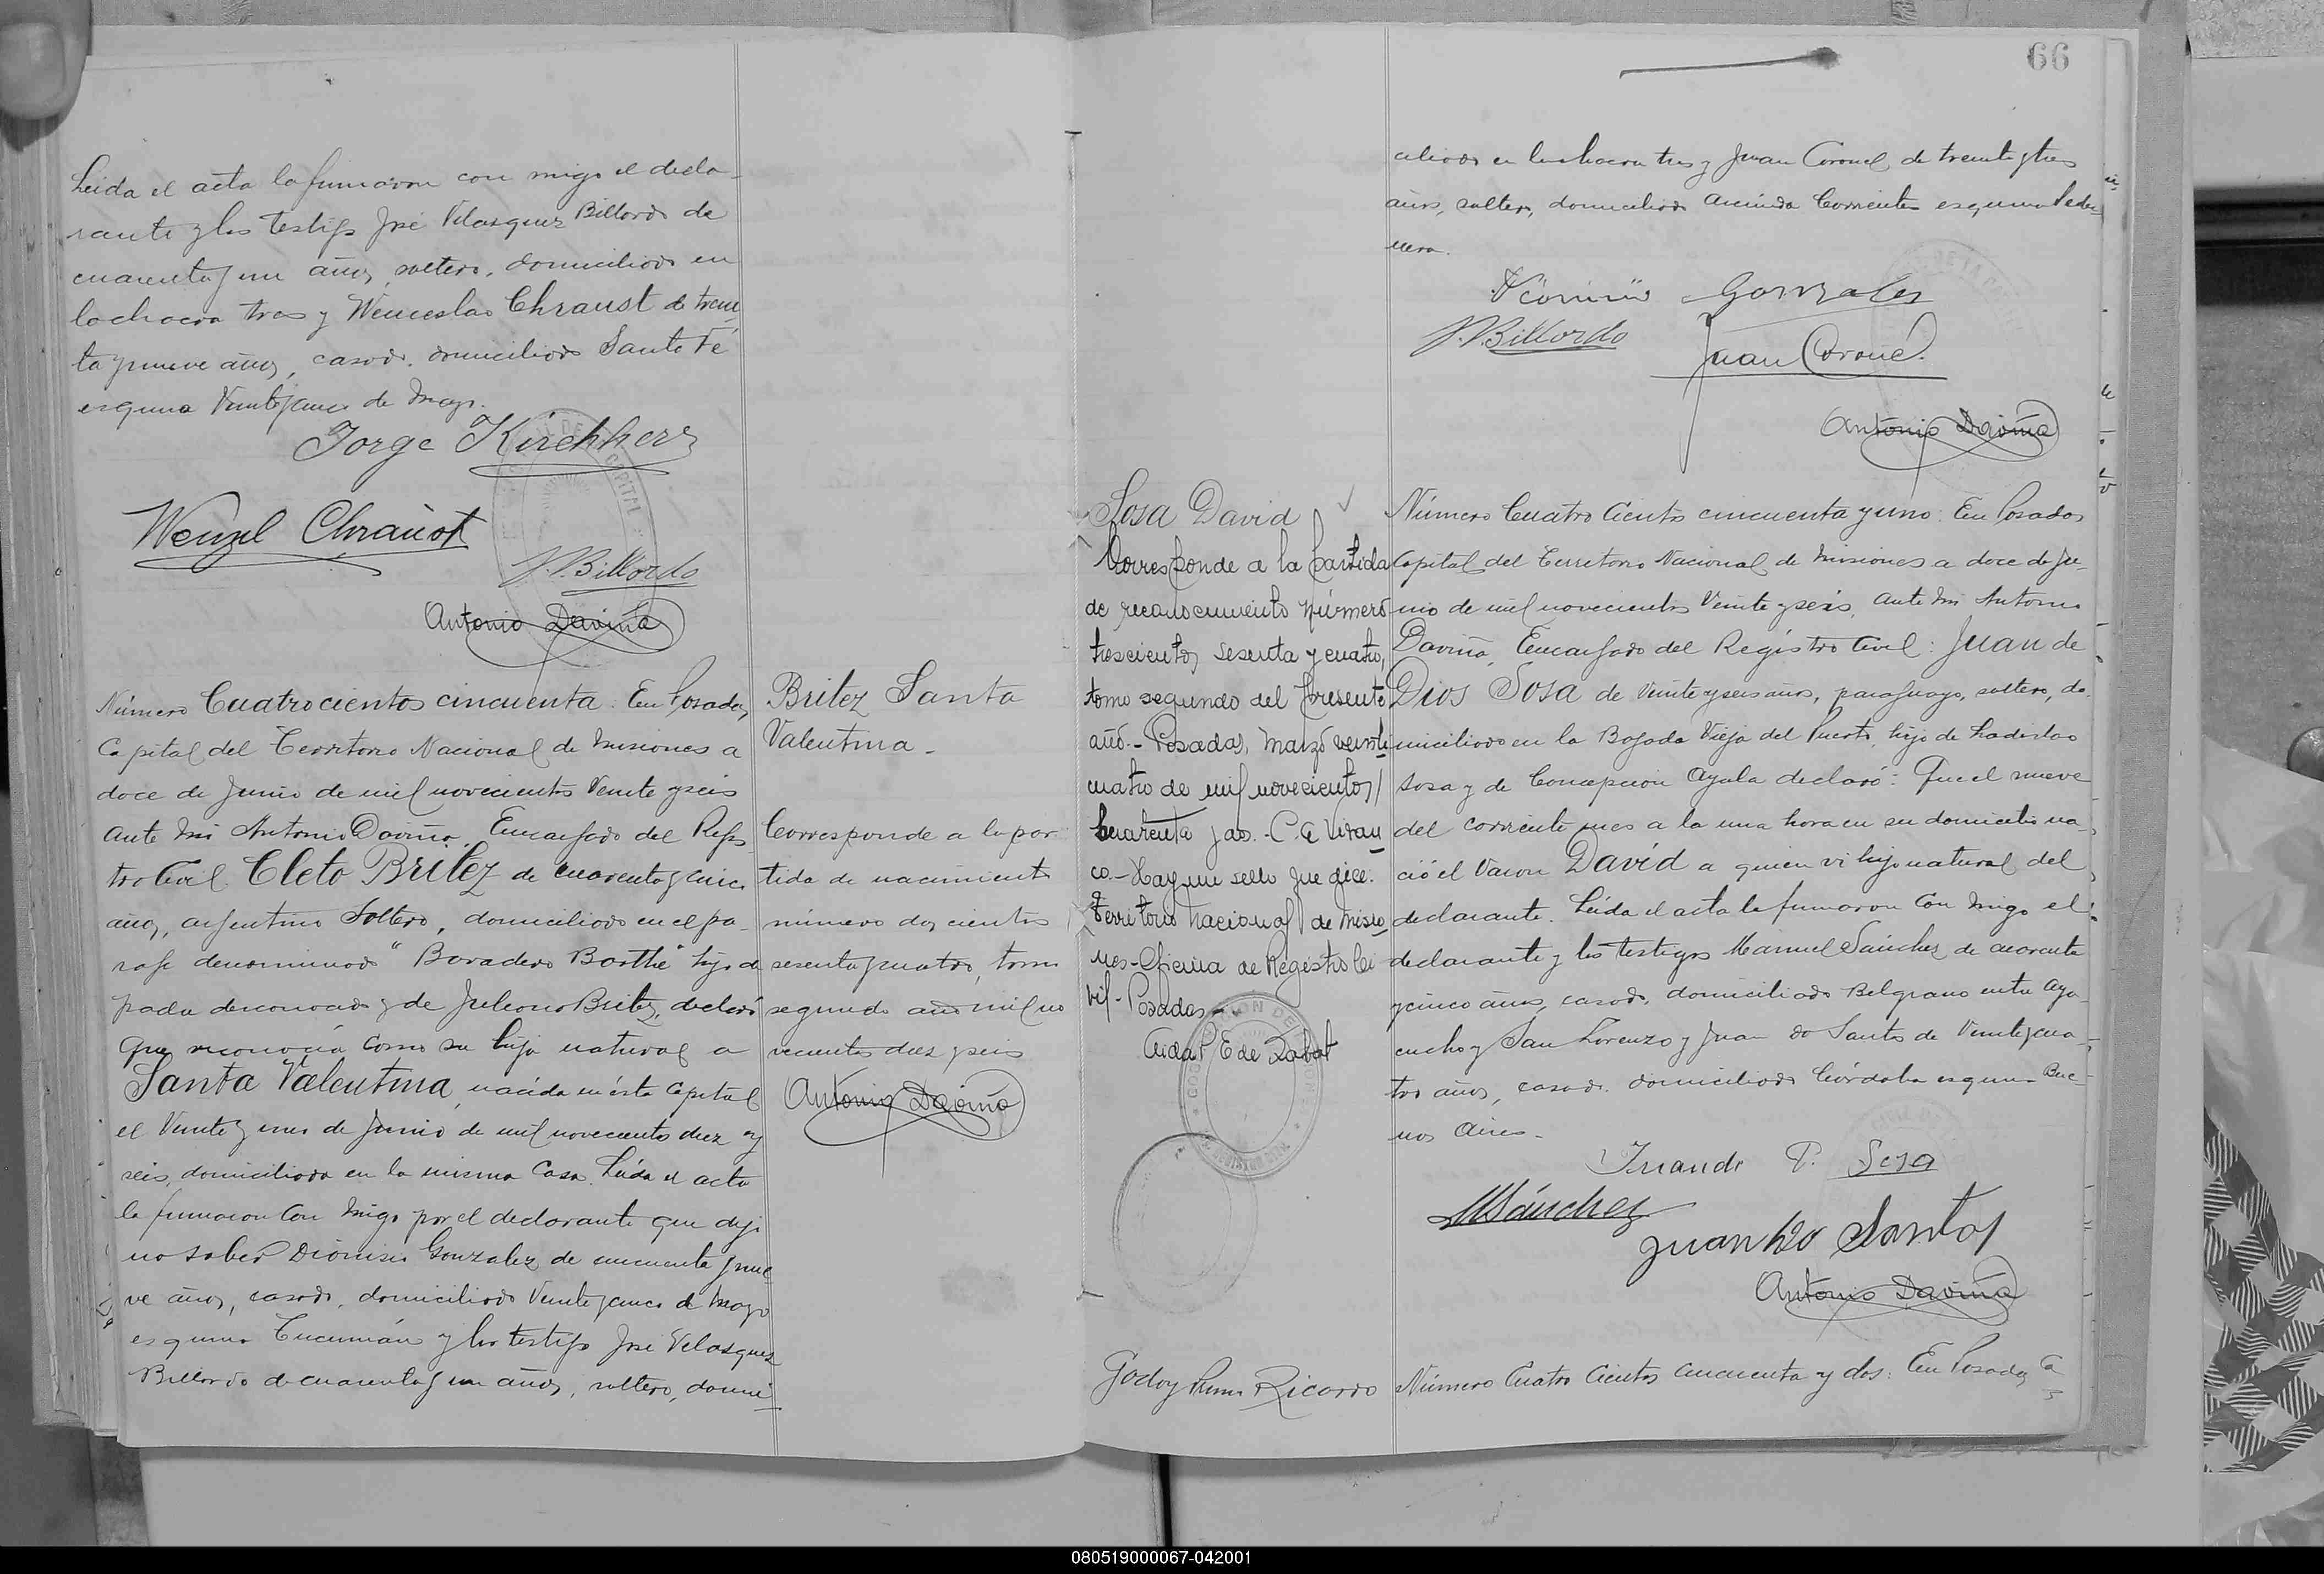 Leida el acta la firmaron con migo el decla-
rante y los testigs José Velasquez Billordo de
cuarenta y un años, soltero, domiciliado en
la chacra tres y Wenceslao Chraust de trein
ta y nueve años, casado, domiciliado Santa Fé
esquina Veinte y cinco de Mayo.
Jorge Kirchherr
Wenzl Chraust
J. V. Billordo
Antonio Daviña
Número Cuatrocientos cincuenta: En Posadas
Capital del Territorio Nacional de Misiones a
doce de Junio de mil novecientos veinte y seis
ante mi Antonio Daviña, Encargado del Regis
tro Civil Cleto Britez de cuarenta y cinco
años, argentino Soltero, domiciliado en el pa-
raje denominado "Boradero Barthe" hijo de
padre desconocido y de Juliana Britez, declaró
Que reconocia como su hija natural a
Santa Valentina, nacida en ésta Capital
el Veinte y uno de Junio de mil novecientos diez y
seis, domiciliada en la misma Casa. Leida el acta
la firmaron con migo por el declarante que dijo
no saber Dionisio Gonzalez de cincuenta y nue
ve años, casado, domiciliado Veinte y cinco de Mayo
esquina Tucumán y los testigs José Velasquez
Billordo de cuarenta y un años, soltero, domi
Britez Santa
Valentina-
Corresponde a la par
tida de nacimiento
número dos cientos
sesenta y cuatro, tomo
segundo año mil no
vecientos diez y seis
Antonio Daviña
66
ciliado en la chacra tres y Juan Coronel de treinta y tres
años, soltero, domiciliado Avenida Corrientes esquina Peder
nera.
Dionisio Gonzales
J. V. Billordo
Juan Coronel
Antonio Daviña
Sosa David
Corresponde a la Partida
de reconocimiento número
trescientos sesenta y cuatro,
tomo segundo del presente
año.- Posadas, Marzo veinte
cuatro de mil novecientos
cuarenta y dos.-C. A. Viran
co.-Hay un sello que dice:
Territorio Nacional de Misio
nes-Oficina de Registro Ci
vil-Posadas-
Aida P. E de Rabat
Número Cuatro Cientos cincuenta y uno: En Posadas
Capital del Territorio Nacional de Misiones a doce de Ju-
nio de mil novecientos Veinte y seis, ante mi Antonio
Daviña, Encargado del Registro Civil: Juan de
Dios Sosa de veinte y seis años, paraguayo, soltero, do-
miciliado en la Bajada Vieja del Puerto, hijo de Ladislao
Sosa y de Concepcion Ayala declaró: Que el nueve
del corriente mes a la una hora en su domicilio na-
ció el Varon David a quien vi hijo natural del
declarante. Leida el acta la firmaron Con migo el
declarante y los testigos Manuel Sánchez de cuarenta
y cinco años, casado, domiciliado Belgrano entre Aya-
cucho y San Lorenzo y Juan do Santos de Veinte y cua-
tro años, casado, domiciliado Córdoba esquina Bue-
nos Aires-
Juande D. Sosa
MSánchez
Juan do Santos
Antonio Daviña
Godoy Ricardo
Número Cuatro Cientos cincuenta y dos: En Posadas Ca
080519000067-042001